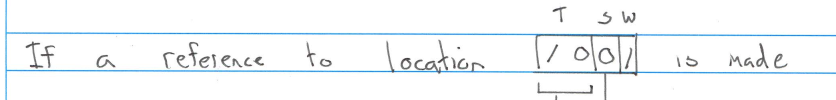 T S W
If a reference to location |10|0|1| is made